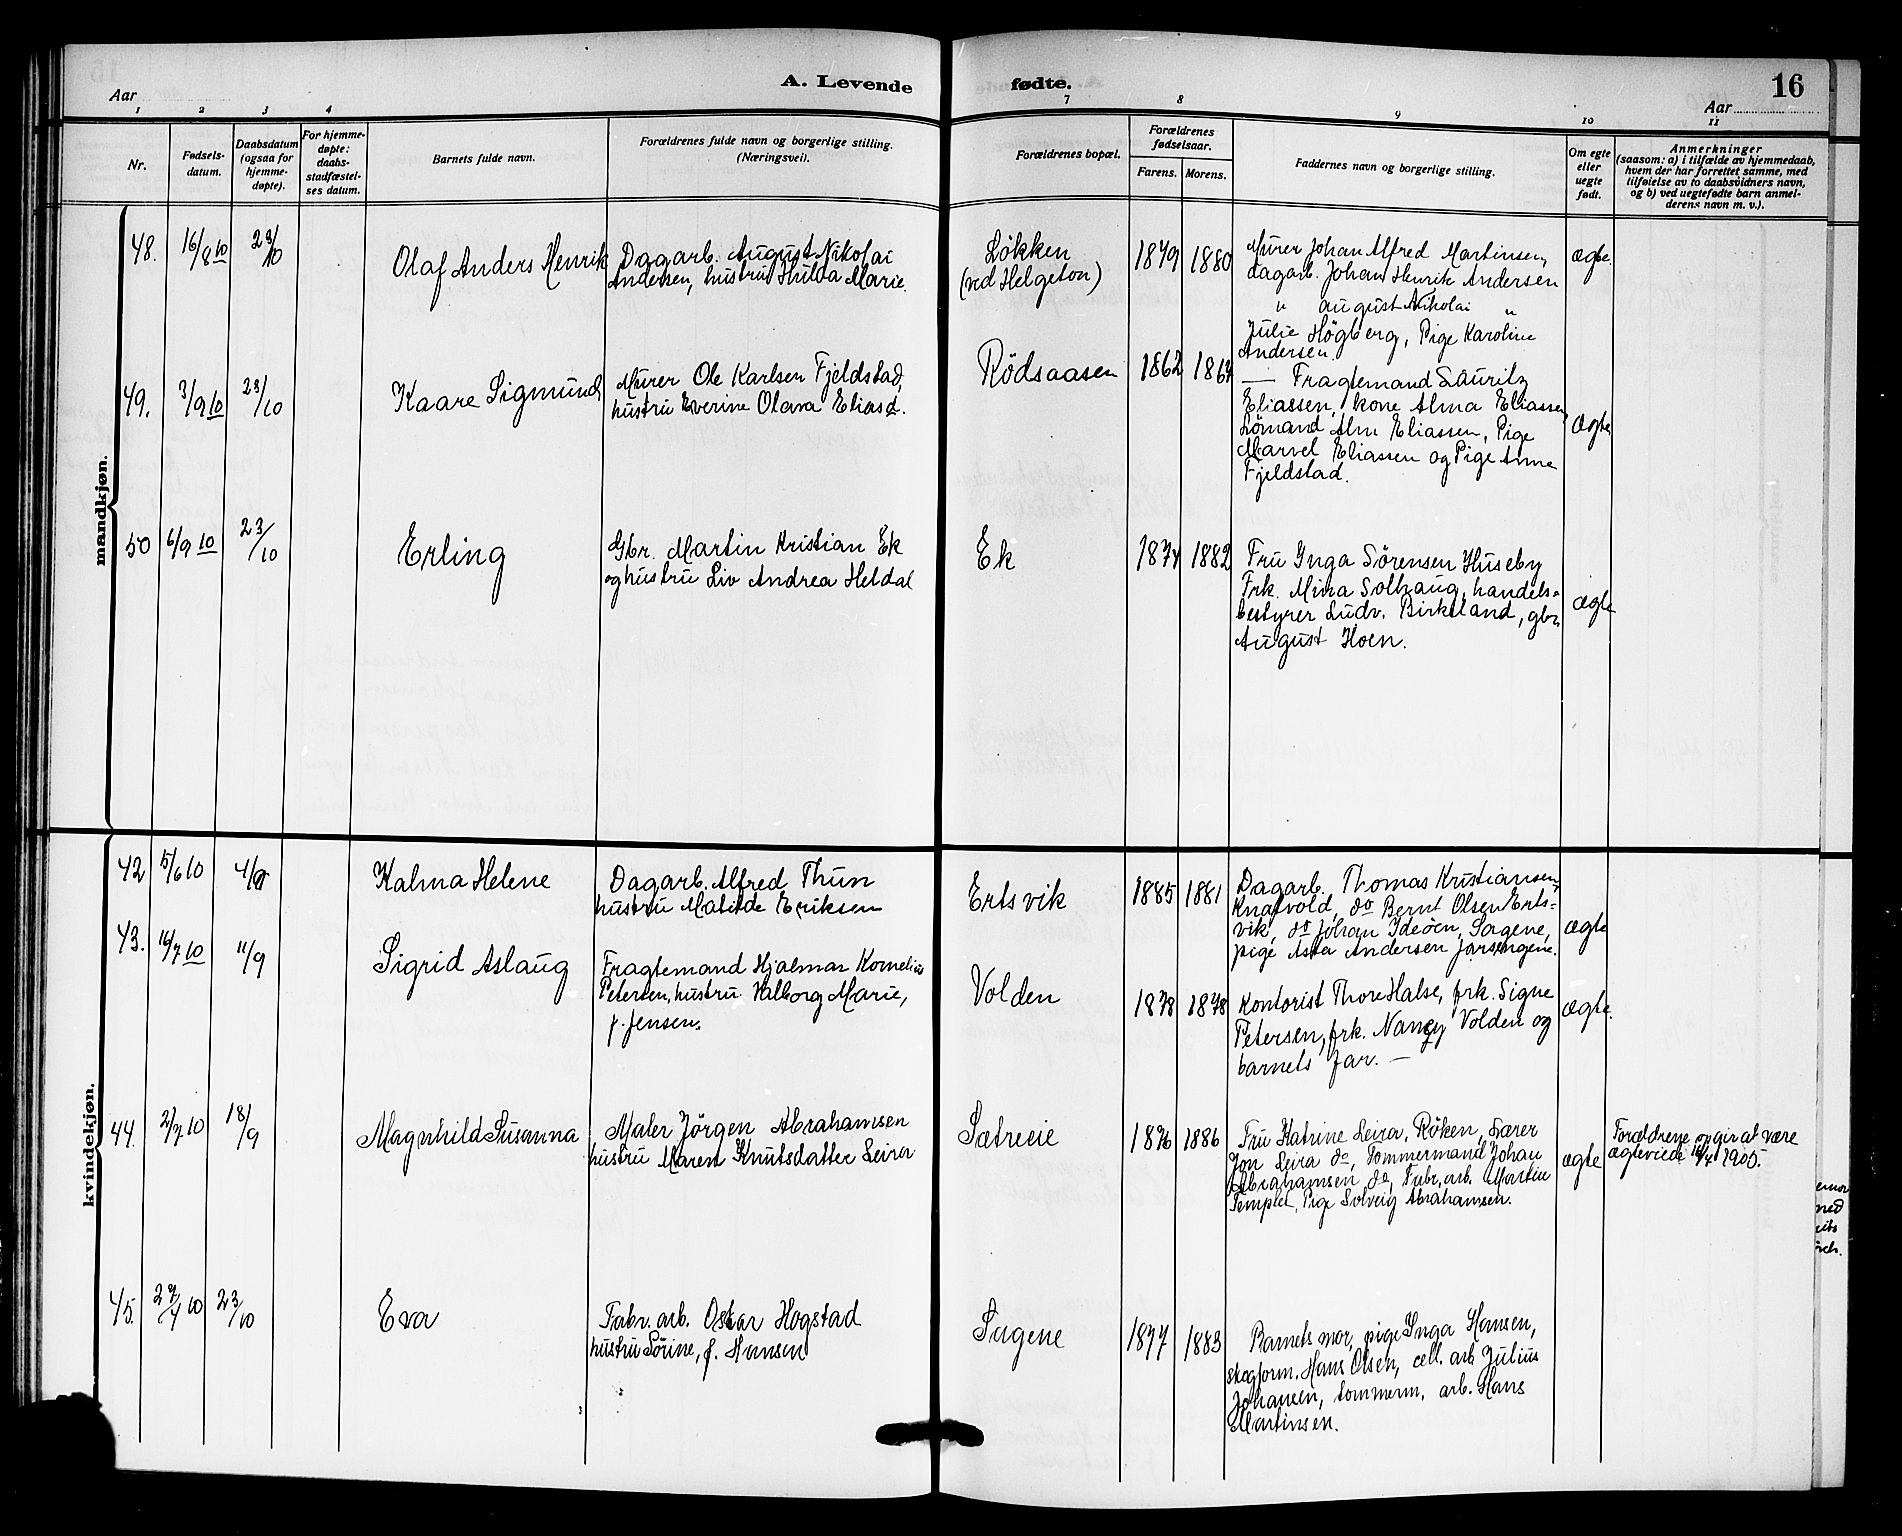 A. Levende fødte.
16
Aar
Aar
1 2 3 4 7 8 9 10 11
Nr.
Fødsels-
datum.
Daabsdatum
(ogsaa for
hjemme-
døpte).
For hjemme-
døpte:
daabs-
stadfæstel-
ses datum.
Barnets fulde navn.
Forældrenes fulde navn og borgerlige stilling.
(Næringsvei).
Forældrenes bopæl.
Forældrenes
fødselsaar.
Farens. Morens.
Faddernes navn og borgerlige stilling.
Om egte
eller
uegte
født.
Anmerkninger
(saasom: a) i tilfælde av hjemmedaab,
hvem der har forrettet samme, med
tilføielse av to daabsvidners navn,
og b) ved uegtefødte barn anmel-
derens navn m. v.).
mandkjøn.
48. 16/8 10 23/10
Olaf Anders Henrik
Dagarb. August Nikolai
Andersen, hustru Hulda Marie.
Løkken
(ved Helgeton)
1879 1880
Murer Johan Alfred Martinsen,
dagarb. Johan Henrik Andersen
" august Nikolai "
Julie Högberg, Pige Karoline
Andersen.
ægte.
49. 3/9 10 23/10
Kaare Sigmund
Murer Ole Karlsen Fjeldstad,
hustru Everine Olava Eliasd.
Rödsaasen
1862 1867
— Fragtemand Lauritz
Eliassen, kone Alma Eliassen,
Sömand Alm Eliassen, Pige
Marvel Eliassen og Pige Anna
Fjeldstad.
ægte
50 6/9 10 23/10
Erling
Gbr. Martin Kristian Ek
og hustru Liv Andrea Heldal
Ek
1874 1882
Fru Inga Sörensen Huseby
Frk. Mina Solhaug, handels-
bestyrer Ludv. Birkeland, gbr.
August Hoen.
ægte
kvindekjøn.
42 5/6 10 4/9
Kalma Helene
Dagarb. Alfred Thun
hustru Matilde Eriksen
Ertsvik
1885 1881
Dagarb. Thomas Kristiansen,
Knatvold, do Bernt Olsen Erts-
vik, do Johan Ideöen, Sagene,
pige Asta Andersen Jarsengene.
ægte
43. 16/7 10 11/9
Sigrid Aslaug
Fragtemand Hjalmar Kornelius
Petersen, hustru Valborg Marie,
f. Jensen.
Volden
1878 1878
Kontorist Thore Halse, frk. Signe
Petersen, frk. Nancy Volden og
barnets far. —
ægte.
44. 2/7 10 18/9
Magnhild Susanna
Maler Jörgen Abrahamsen
hustru Maren Knutsdatter Leira
Sætreeie
1876 1886
Fru Katrine Leira, Röken, Lærer
Jon Leira do, Tömmermand Johan
Abrahamsen do, Fabr. arb. Martin
Templet, Pige Solveig Abrahamsen.
ægte
Forældrene opgir at være
ægteviede 1905.
45. 27/7 10 23/10
Eva
Fabr. arb. Oskar Hogstad
hustru Sörine, f. Hansen
Sagene
1877 1883
Barnets mor, pige Inga Hansen,
skogform. Hans Olsen, cell. arb. Julius
Johansen, tømmerm. arb. Hans
Martinsen.